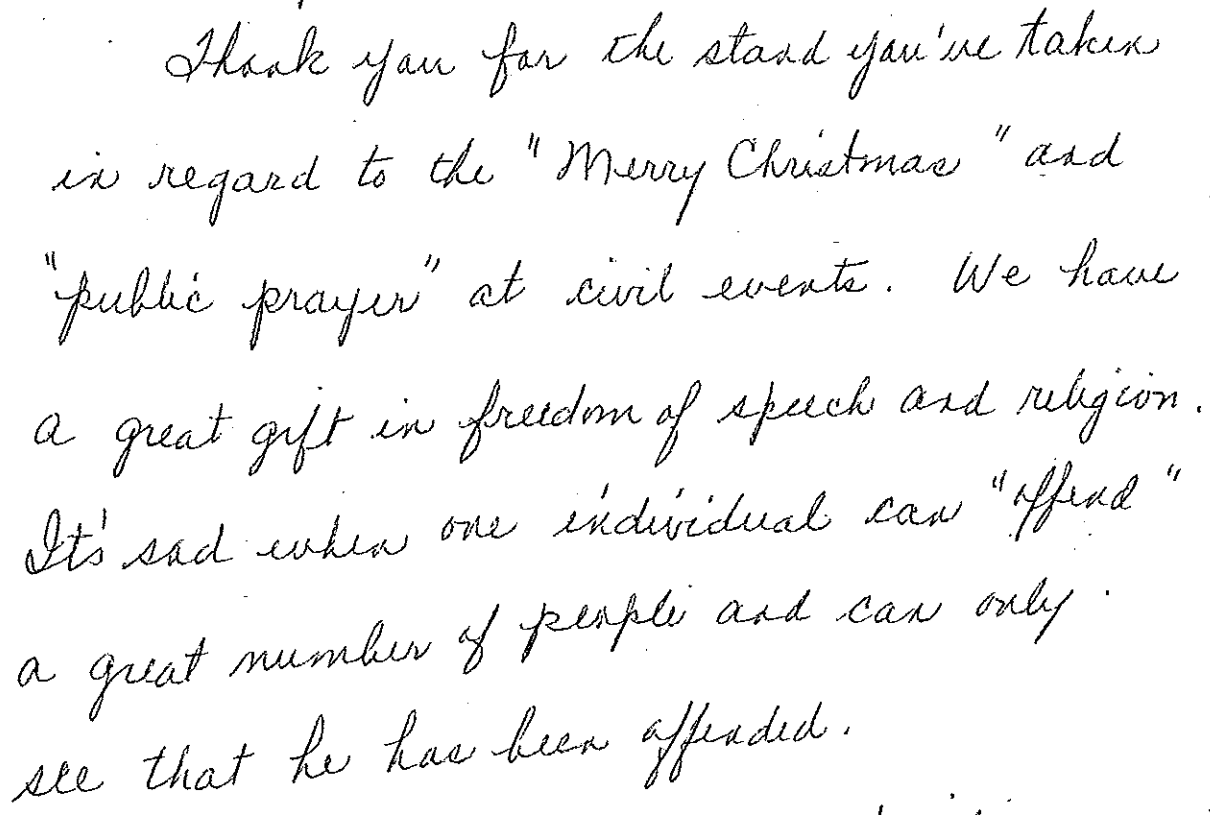 Thank you for the stand you've taken
in regard to the "Merry Christmas" and
"public prayer" at civil events. We have
a great gift in freedom of speech and religion.
It's sad when one individual can "offend"
a great number of people and can only
see that he has been offended.